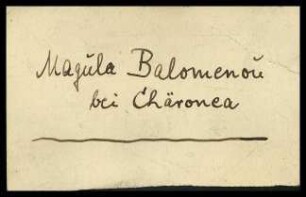 Magŭla Balomenoŭ
bei Chäronea